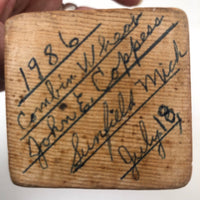 1986
Combin Wheat
John E. Coppess
Sunfield Mich
July 18,